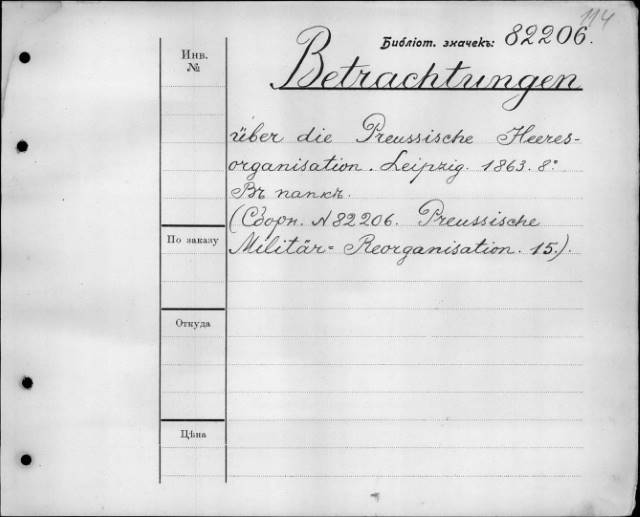 114
Библіот. значекъ: 82206.
Инв.
№
Betrachtungen
über die Preussische Heeres-
organisation. Leipzig. 1863. 8°.
Въ папкѣ.
(Сборн. № 82206. Preussische
По заказу
Militär= Reorganisation. 15.).
Откуда
Цѣна